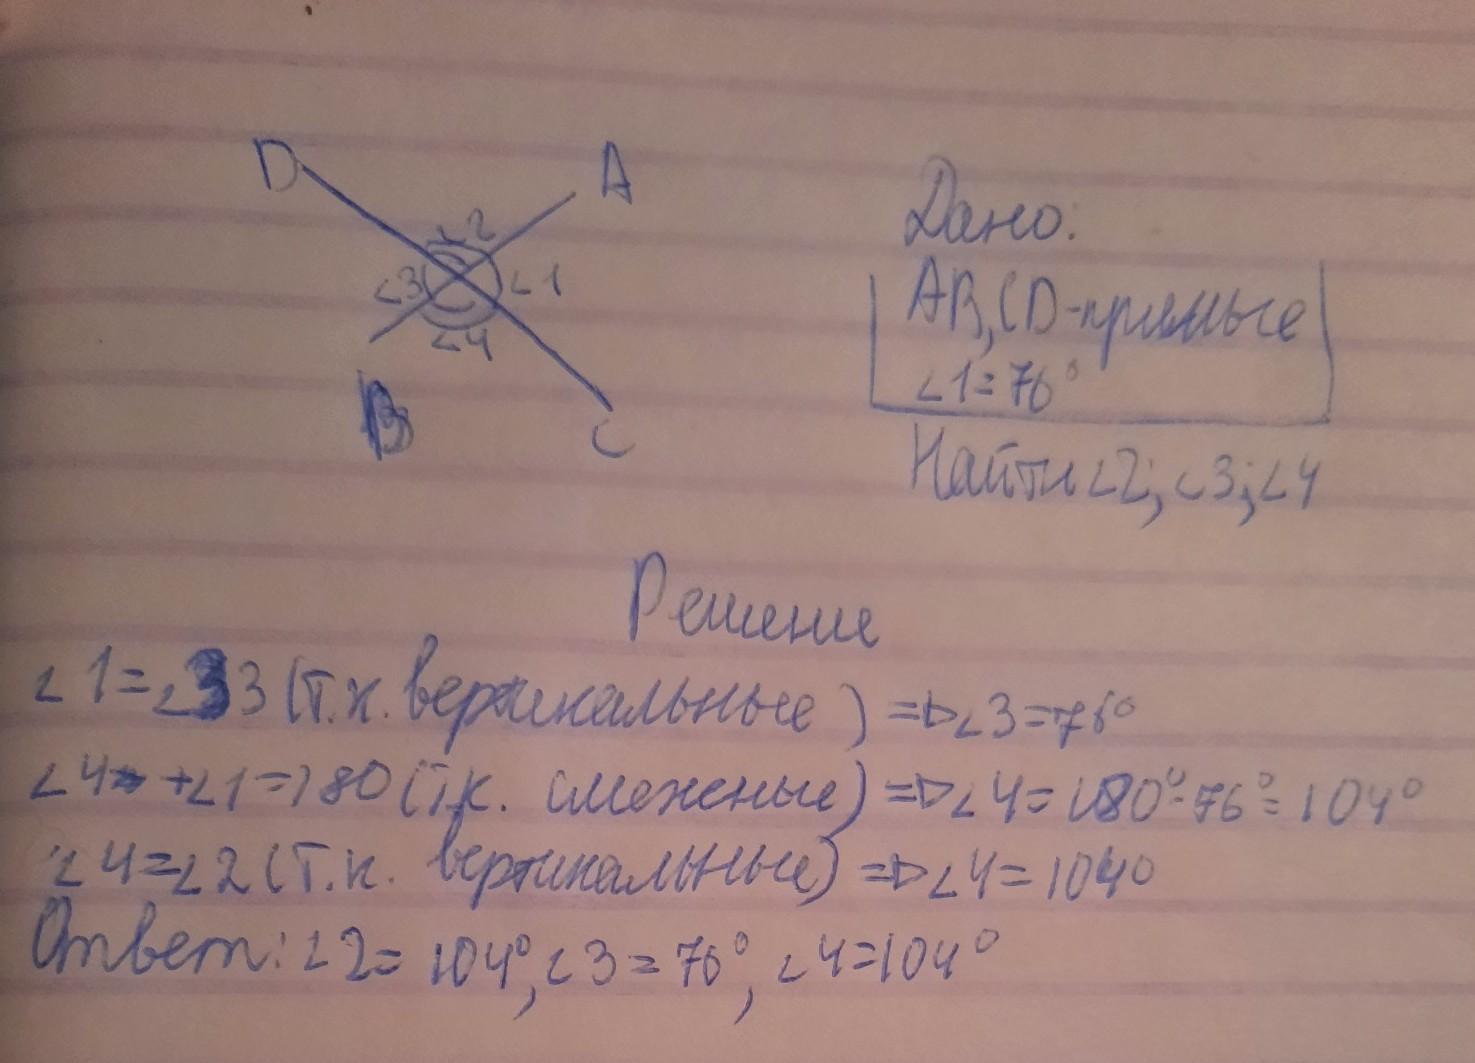 D
A
∠2
∠3
∠1
∠4
B
C
Дано:
AB, CD - прямые
∠1=76°
Найти ∠2; ∠3; ∠4
Решение
∠1=∠3 3 (т.к. вертикальные) => ∠3=76°
∠4 +∠1=180 (т.к. смеженые) => ∠4=180°-76°=104°
∠4=∠2 (т.к. вертикальные) => ∠4=104°
Ответ: ∠2=104°, ∠3=76°, ∠4=104°